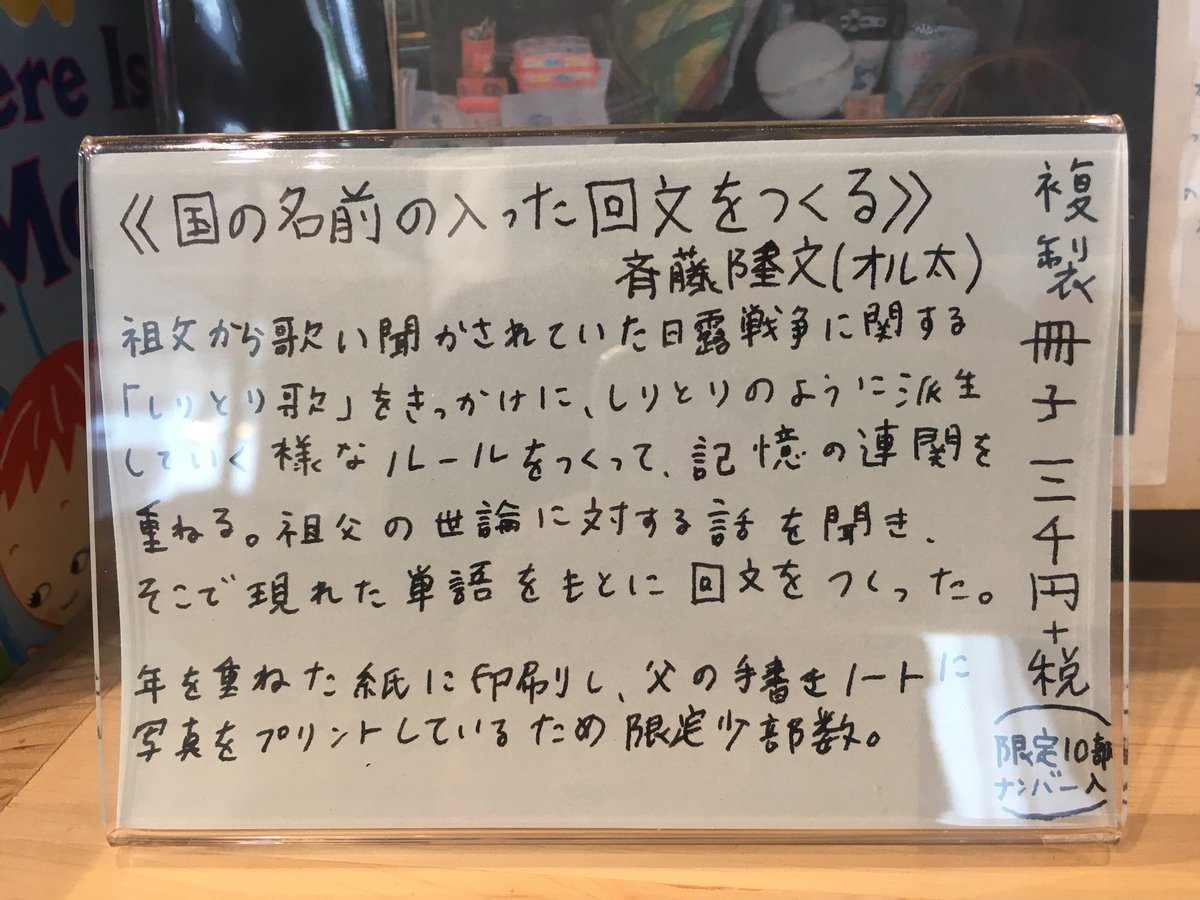 《国の名前の入った回文をつくる》
斉藤隆文(オル太)
祖父から歌い聞かされていた日露戦争に関する
「しりとり歌」をきっかけに、しりとりのように派生
していく様なルールをつくって、記憶の連関を
重ねる。祖父の世論に対する話を聞き、
そこで現れた単語をもとに回文をつくった。
年を重ねた紙に印刷し、父の手書きノートに
写真をプリントしているため限定少部数。
複製冊子三千円+税
(限定10部
ナンバー入)
ere Is